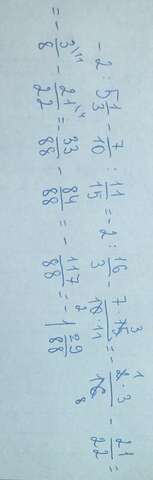 -2 : 5 1/3 - 7/10 : 11/15 = -2 : 16/3 - 7·15 3/10 2·11 = - 1 2·3/16 8 - 21/22 =
= - 3\11/8 - 21\4/22 = - 33/88 - 84/88 = - 117/88 = -1 29/88